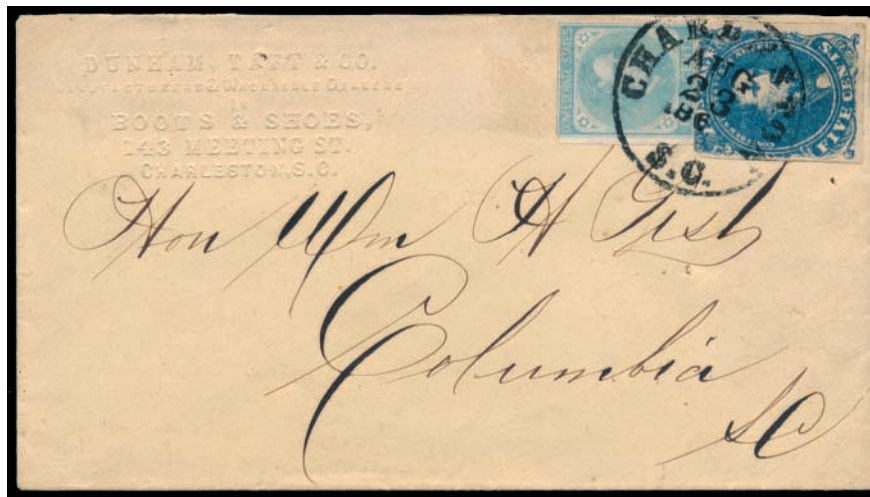 DUNHAM, TAFT & CO.
MANUFACTURERS & WHOLESALE DEALERS
IN
BOOTS & SHOES,
143 MEETING ST.
CHARLESTON, S.C.
CONFEDERATE STATES
CHARLESTON
AUG
23
186
S.C.
FIVE CENTS
Hon Wm H Gist
Columbia
SC